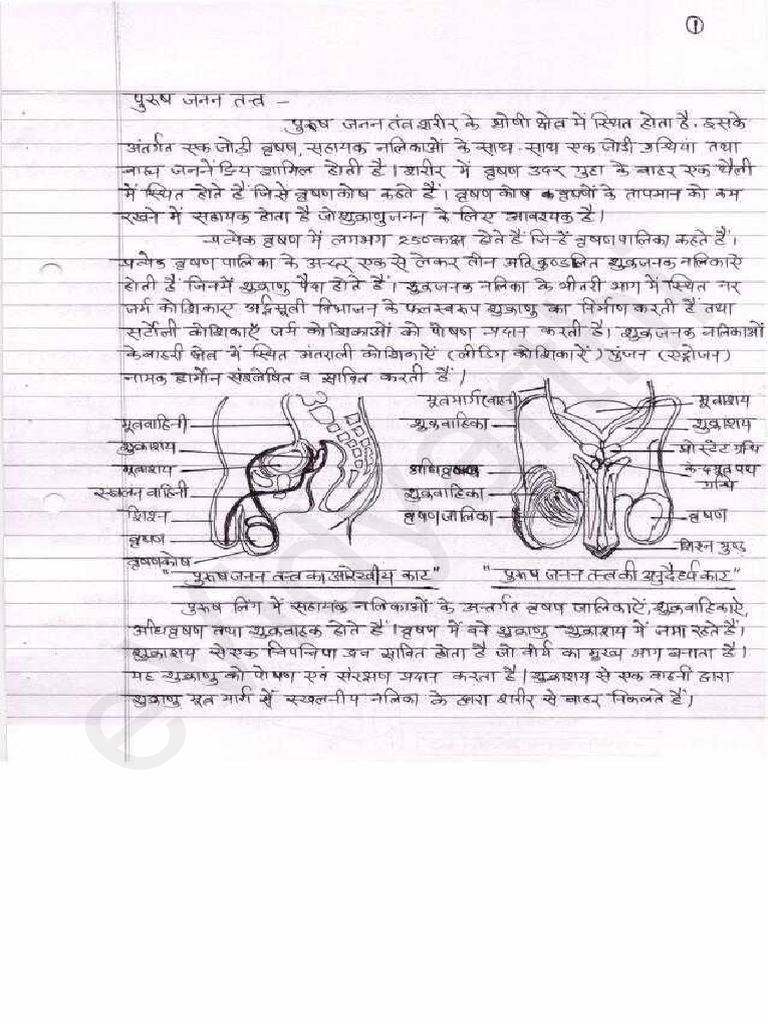 ①
पुरुष जनन तन्त्र –
पुरुष जनन तंत्र शरीर के श्रोणी क्षेत्र में स्थित होता है. इसके
अंतर्गत एक जोड़ी वृषण, सहायक नलिकाओं के साथ-साथ एक जोड़ी ग्रंथियां तथा
बाह्य जननेंद्रिय शामिल होती है। शरीर में वृषण उदर गुहा के बाहर एक थैली
में स्थित होते हैं जिसे वृषणकोष कहते हैं। वृषण कोष वृषणों के तापमान को कम
रखने में सहायक होता है जो शुक्राणुजनन के लिए आवश्यक है।
प्रत्येक वृषण में लगभग 250 कक्ष होते हैं जिन्हें वृषण पालिका कहते हैं।
प्रत्येक वृषण पालिका के अन्दर एक से लेकर तीन अति कुण्डलित शुक्रजनक नलिकाऐं
होती हैं जिनमें शुक्राणु पैदा होते हैं। शुक्रजनक नलिका के भीतरी भाग में स्थित नर
जर्म कोशिकाएं अर्द्धसूत्री विभाजन के फलस्वरूप शुक्राणु का निर्माण करती हैं तथा
सर्टोली कोशिकाएँ जर्म कोशिकाओं को पोषण प्रदान करती है। शुक्रजनक नलिकाओं
के बाहरी क्षेत्र में स्थित अंतराली कोशिकाऐं (लीडिग कोशिकाऐं) पुंजन (एन्ड्रोजन)
नामक हार्मोन संश्लेषित व स्रावित करती हैं।
मूत्रवाहिनी
शुक्राशय
मूत्राशय
स्खलन वाहिनी
शिश्न
वृषण
वृषणकोष
मूत्रमार्ग (वाहिनी)
शुक्रवाहिका
अधिवृषण
शुक्रवाहिका
वृषण जालिका
मूत्राशय
शुक्राशय
प्रोस्टेट ग्रंथि
ग्रंथि
वृषण
शिश्न मुण्ड
"पुरुष जनन तन्त्र का आरेखीय काट"
"पुरुष जनन तन्त्र की अनुदैर्ध्य काट"
पुरुष लिंग में सहायक नलिकाओं के अन्तर्गत वृषण जालिकाऐं, शुक्रवाहिकाऐं,
अधिवृषण तथा शुक्रवाहक होते हैं। वृषण में बने शुक्राणु शुक्राशय में जमा रहते हैं।
शुक्राशय से एक चिपचिपा द्रव स्रावित होता है जो वीर्य का मुख्य भाग बनाता है।
यह शुक्राणु को पोषण एवं संरक्षण प्रदान करता है। शुक्राशय से एक वाहिनी द्वारा
शुक्राणु मूत्र मार्ग से स्खलनीय नलिका के द्वारा शरीर से बाहर निकलते हैं।